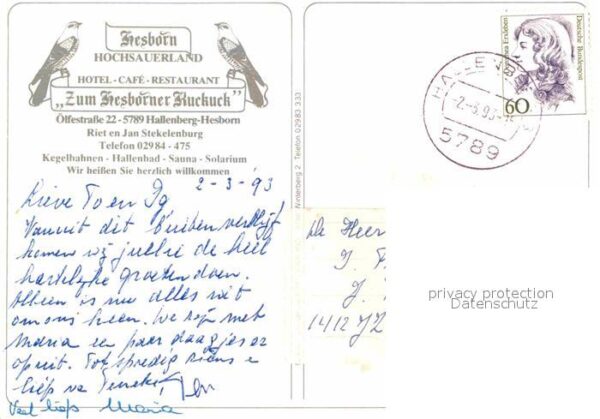 Hesborn
HOCHSAUERLAND
HOTEL - CAFÉ - RESTAURANT
„Zum Hesborner Kuckuck"
Ölfestraße 22 - 5789 Hallenberg-Hesborn
Riet en Jan Stekelenburg
Telefon 0 29 84 - 475
Kegelbahnen - Hallenbad - Sauna - Solarium
Wir heißen Sie herzlich willkommen
2-3-'93
Lieve To en
Vanuit dit buiten verblijf
komen wij jullie de heel
hartelijke groeten doen.
Alleen is nu alles wit
om ons heen. We zijn met
Maria een paar daagjes er
op uit. Tot spoedig ziens
liefs
Veel liefs Maria
Winterberg 2 Telefon 02983 333
Deutsche Bundespost
60
HALLENBERG
-2.-3.93-
5789
De Heer
J.
J.
1412 JZ
privacy protection
Datenschutz